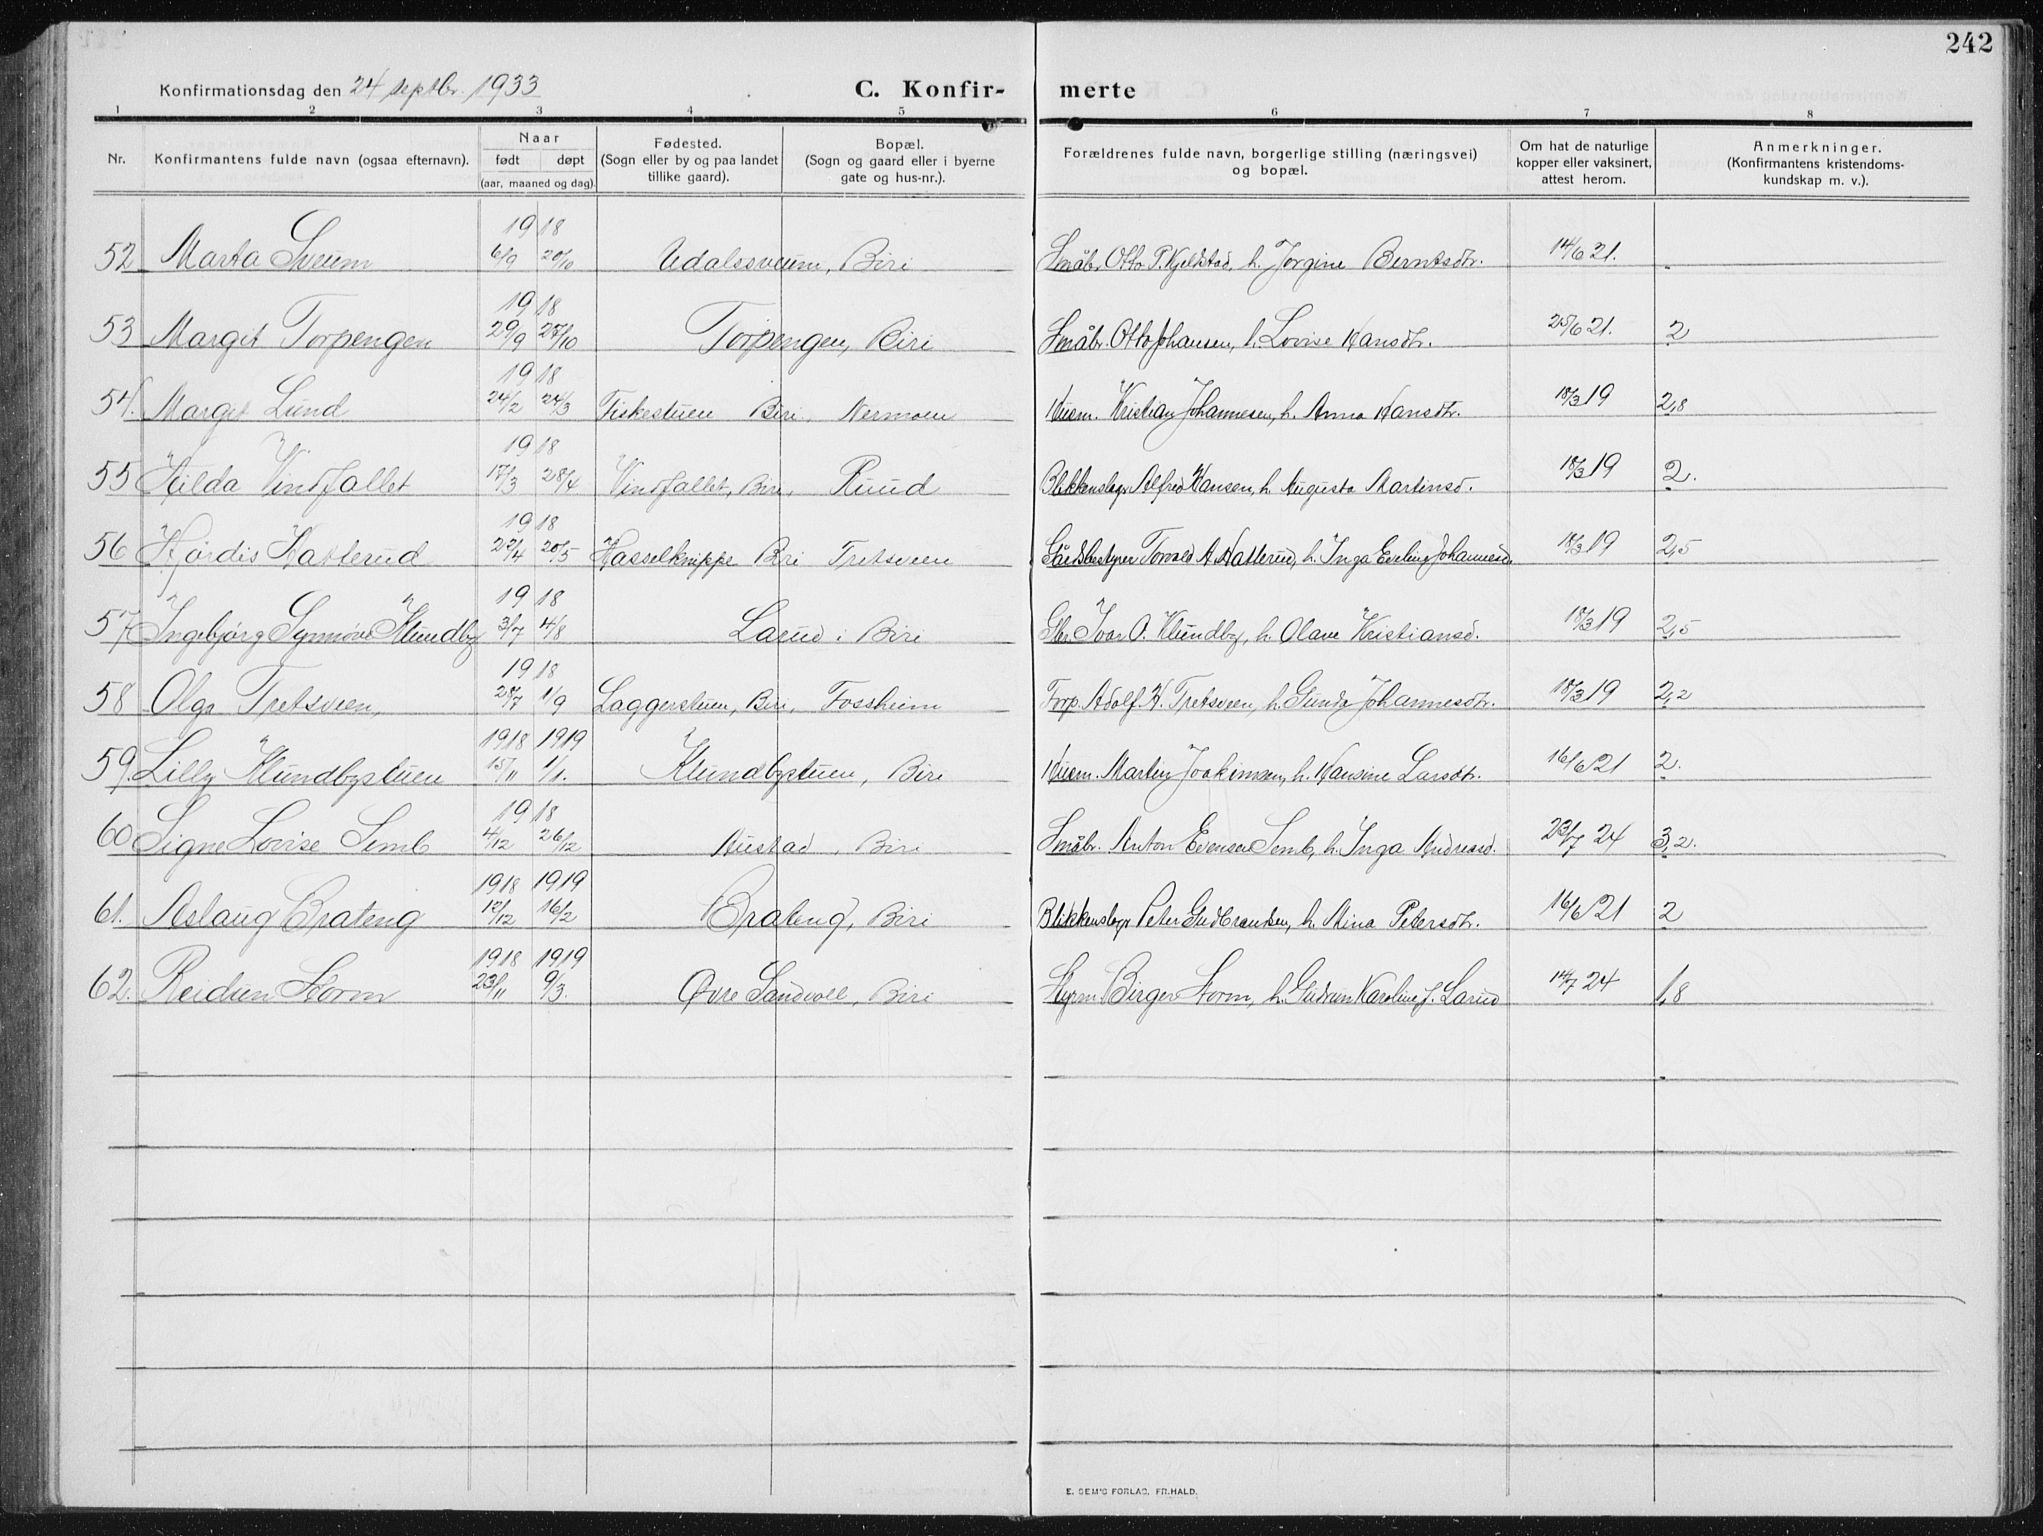 242
Konfirmationsdag den 24 septbr. 1933
C. Konfir- merte
1 2 3 4 5 6 7 8
Nr. Konfirmantens fulde navn (ogsaa efternavn). Naar født døpt (aar, maaned og dag). Fødested. (Sogn eller by og paa landet tillike gaard). Bopæl. (Sogn og gaard eller i byerne gate og hus-nr.). Forældrenes fulde navn, borgerlige stilling (næringsvei) og bopæl. Om hat de naturlige kopper eller vaksinert, attest herom. Anmerkninger. (Konfirmantens kristendoms- kundskap m. v.).
1918
52 Marta Sveum 6/9 20/10 Udalssveum, Biri Småbr. Otto P. Kjeldstad, h. Jørgine Berntsdtr. 14/6 21.
1918
53 Margit Torpengen 29/9 27/10 Torpengen, Biri Småbr. Otto Johansen, h. Lovise Hansdtr. 25/6 21. 2
1918
54. Margit Lund 24/2 24/3 Fiskestuen Biri, Nermoen Husm. Kristian Johannesen, h. Anna Hansdtr. 18/3 19 2,8
1918
55 Hilda Vindfallet 17/3 28/4 Vindfallet, Biri, Ruud Blikkenslagr Alfred Hansen, h. Augusta Martinsd. 18/3 19 2.
1918
56 Hjørdis Hatterud 22/4 20/5 Hasselknippe Biri Tretsveen Gårdsbestyrer A. Hatterud, h. Inga Johannesd. 18/3 19 2,5
1918
57 Ingebjørg Synnøve Klundby 3/7 4/8 Larud i Biri Gbr. Ivar O. Klundby, h. Olave Kristiansd. 18/3 19 2,5
1918
58 Olga Tretsveen, 28/7 1/9 Laggerstuen, Biri, Fossheim Forp. Adolf H. Tretsveen, h. Gunda Johannesdtr. 18/3 19 2,2
1918 1919
59. Lilly Klundbystuen 15/11 1/1. Klundbystuen, Biri Husm. Martin Joakimsen, h. Hansine Larsdtr. 16/6 21 2.
1918
60 Signe Lovise Semb 4/12 26/12 Austad, Biri Småbr. Anton Evensen Semb, h. Inga Andreasd. 23/7 24 3,2.
1918 1919
61. Aslaug Brateng 12/12 16/2 Brateng, Biri Blikkenslagr Peter Gudbrandsen, h. Mina Petersdtr. 16/6 21 2
1918 1919
62. Reidun Storm 23/11 9/3. Øvre Sandvoll, Biri Styrm. Birger Storm, h. Gudrun Karoline J. Larud 14/7 24 1,8
E. SEM'S FORLAG, FR.HALD.